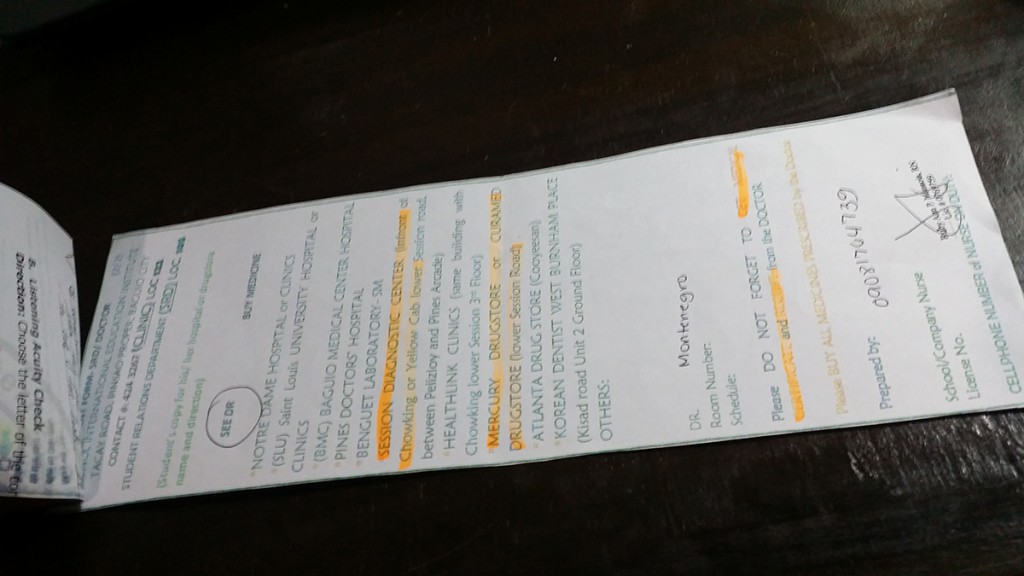 B. Listening Acuity Check
Direction: Choose the letter of the
INTERNATIONAL EDUCATION INSTITUTE
TACAY ROAD, PINSAO PROPER, BAGUIO CITY
CONTACT #: 424 3202 (CLINIC) LOC
STUDENT RELATIONS DEPARTMENT (SRD) LOC
(Student's copy for his/ her hospital or drugstore
name and direction)
SEE DR
BUY MEDICINE
*NOTRE DAME HOSPITAL or CLINICS
* (SLU) Saint Louis UNIVERSITY HOSPITAL or
CLINICS
* (BMC) BAGUIO MEDICAL CENTER HOSPITAL
*PINES DOCTORS' HOSPITAL
*BENGUET LABORATORY - SM
*SESSION DIAGNOSTIC CENTER (infront of
Chowking or Yellow Cab lower Session road,
between Pelizloy and Pines Arcade)
*HEALTHLINK CLINICS (same building with
Chowking lower Session 3rd Floor)
*MERCURY DRUGSTORE or CURAMED
DRUGSTORE (lower Session Road)
*ATLANTA DRUG STORE (Cooyeesan)
*KOREAN DENTIST WEST BURNHAM PLACE
(Kisad road Unit 2 Ground Floor)
OTHERS:
DR. Montenegro
Room Number:
Schedule:
Please DO NOT FORGET TO
and from the DOCTOR
Please BUY ALL MEDICINES PRESCRIBED by the Doctor
Prepared by: 09081764739
School/Company Nurse
License No.
CELLPHONE NUMBER of NURSE ON DUTY: